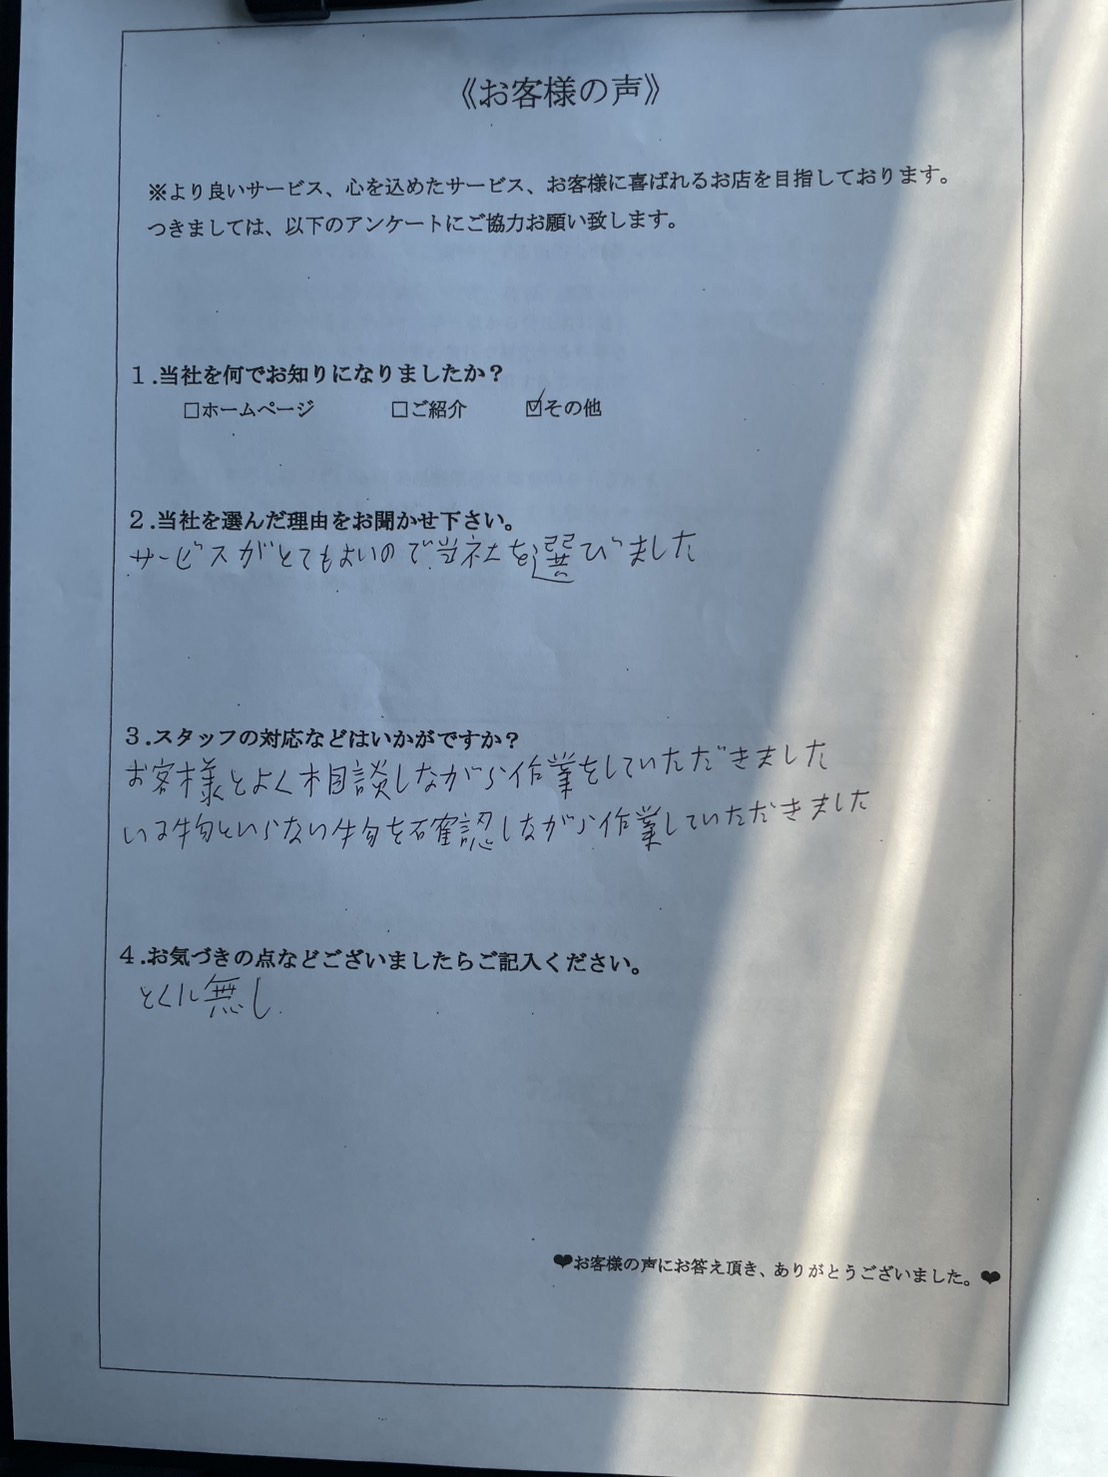 《お客様の声》
※より良いサービス、心を込めたサービス、お客様に喜ばれるお店を目指しております。
つきましては、以下のアンケートにご協力お願い致します。
１.当社を何でお知りになりましたか？
□ホームページ □ご紹介 ☑その他
２.当社を選んだ理由をお聞かせ下さい。
サービスがとてもよいので当社を選びました
３.スタッフの対応などはいかがですか？
お客様とよく相談しながら作業をしていただきました
いる物といらない物を確認しながら作業していただきました
４.お気づきの点などございましたらご記入ください。
とくに無し
❤お客様の声にお答え頂き、ありがとうございました。❤